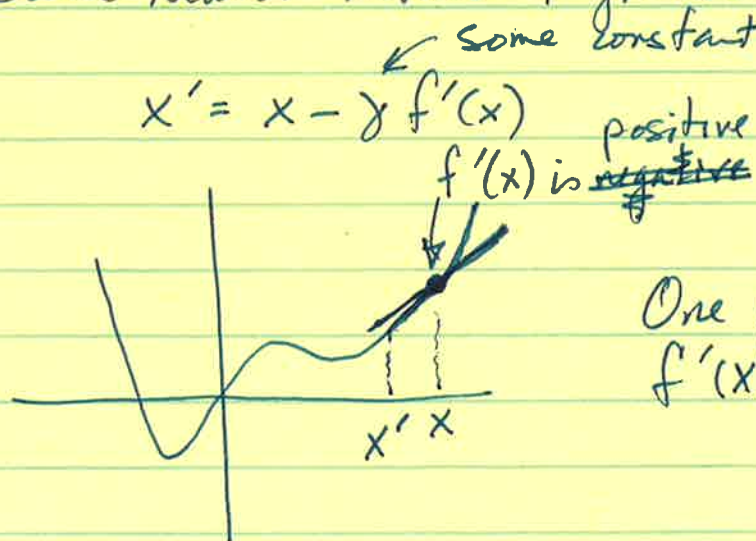 some constant
x' = x - γ f'(x)
positive
f'(x) is negative
One
f'(x
x' x